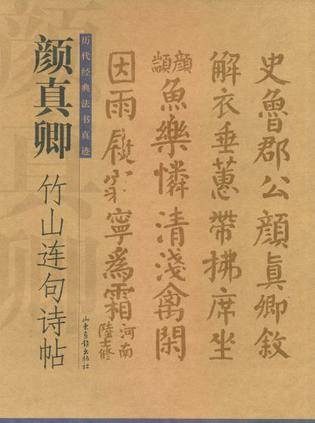 历代经典法书真迹
颜真卿
竹山连句诗帖
山东画报出版社
史魯郡公顏真卿叙
解衣垂蕙帶拂席坐
顏顓魚樂憐清淺禽閑
因雨
寧為霜河南陸士修